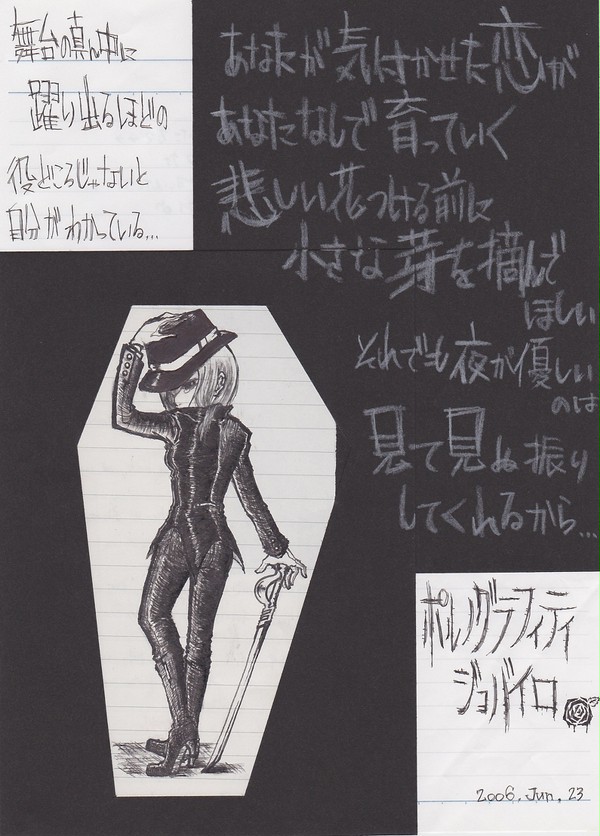 舞台の真ん中に
躍り出るほどの
役どころじゃないと
自分がわかっている…
あなたが気付かせた恋が
あなたなしで育っていく
悲しい花つける前に
小さな芽を摘んで
ほしい
それでも夜が優しい
のは
見て見ぬ振り
してくれるから…
ポルノグラフィティ
ジョバイロ
2006. Jun. 23